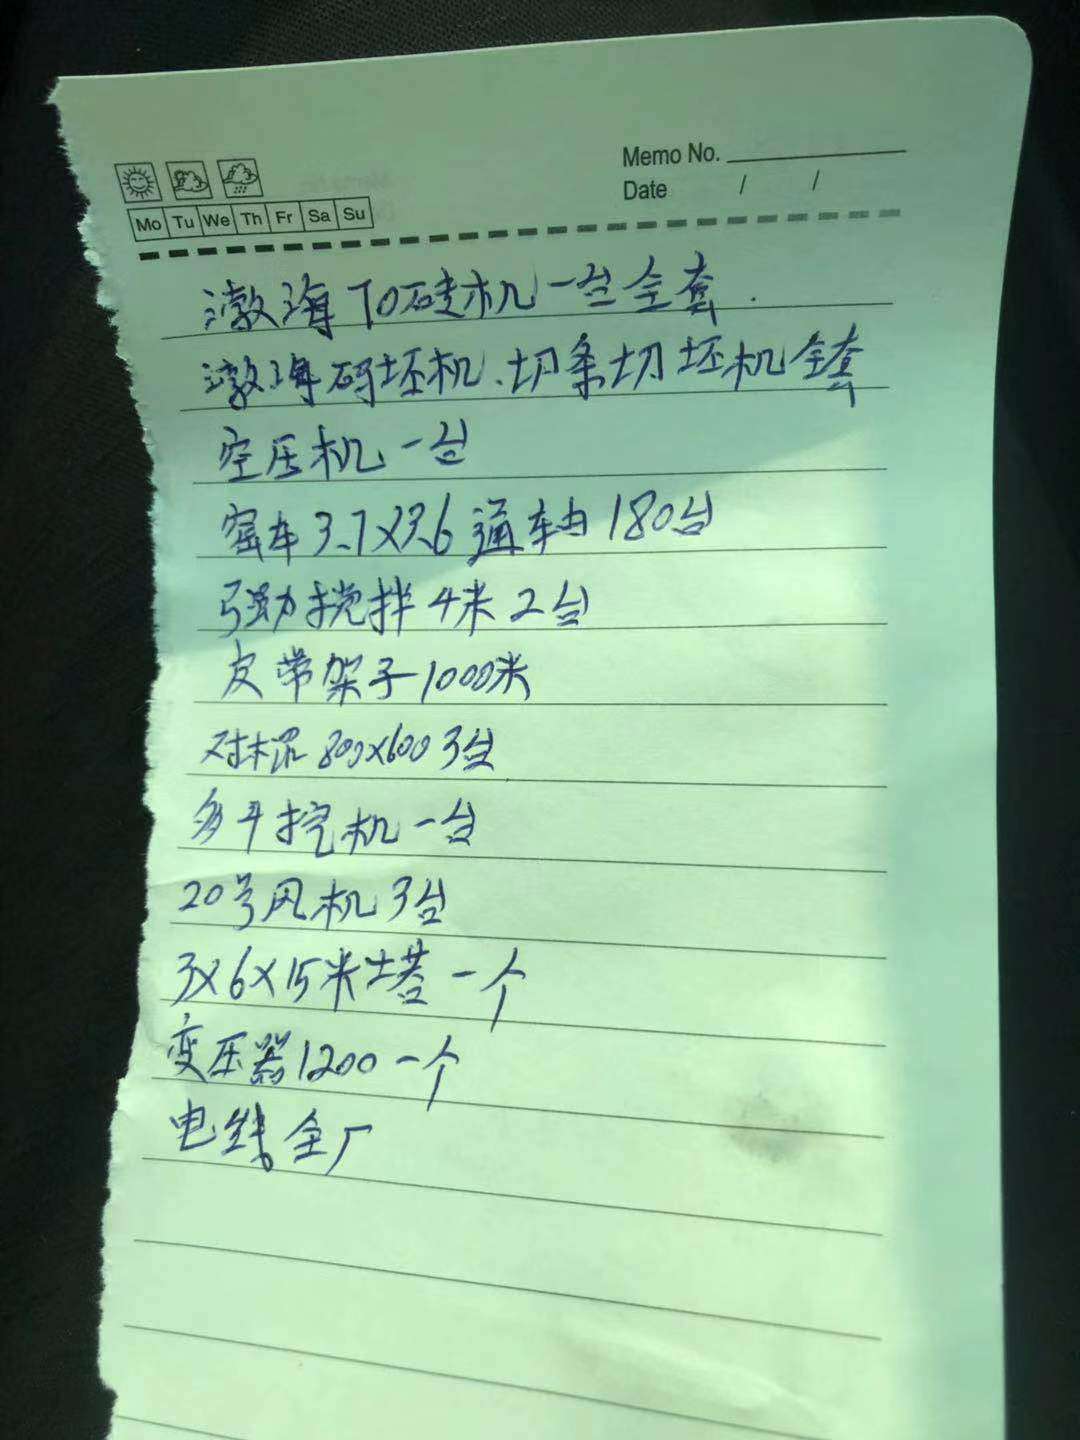 Memo No.
Date / /
Mo Tu We Th Fr Sa Su
激海70硅机一台全套.
激海码坯机、切条切坯机全套
空压机一台
窑车3.7X3.6通轴180台
强劲搅拌4米2台
皮带架子1000米
对棍800X600 3台
多斗挖机一台
20号风机3台
3X6X15米塔一个
变压器1200一个
电线全厂